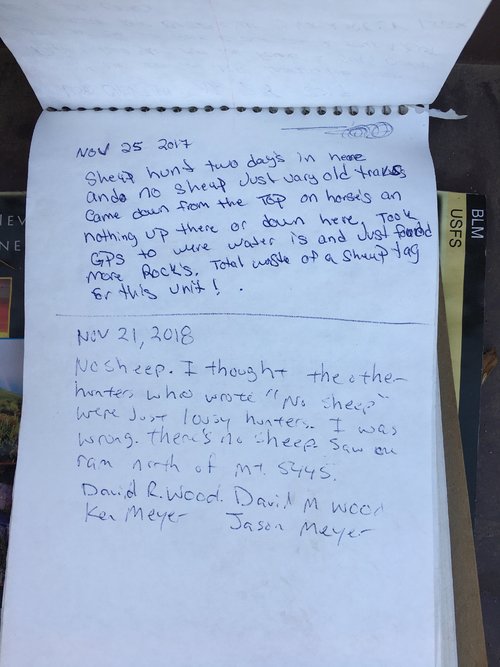 Nov 25 2017
Sheap hunt two day's in here
and no sheap Just vary old tracks
Came down from the Top on horse's an
nothing up there or down here, Took
GPS to were water is and Just found
more Rock's. Total waste of a sheap tag
for this unit!.
Nov 21, 2018
No sheep. I thought the other
hunters who wrote "No sheep"
were Just lousy hunters. I was
wrong. There's no sheep. Saw one
ram north of Mt. 5445.
David R. Wood. David M Wood
Ken Meyer Jason Meyer
BLM
USFS